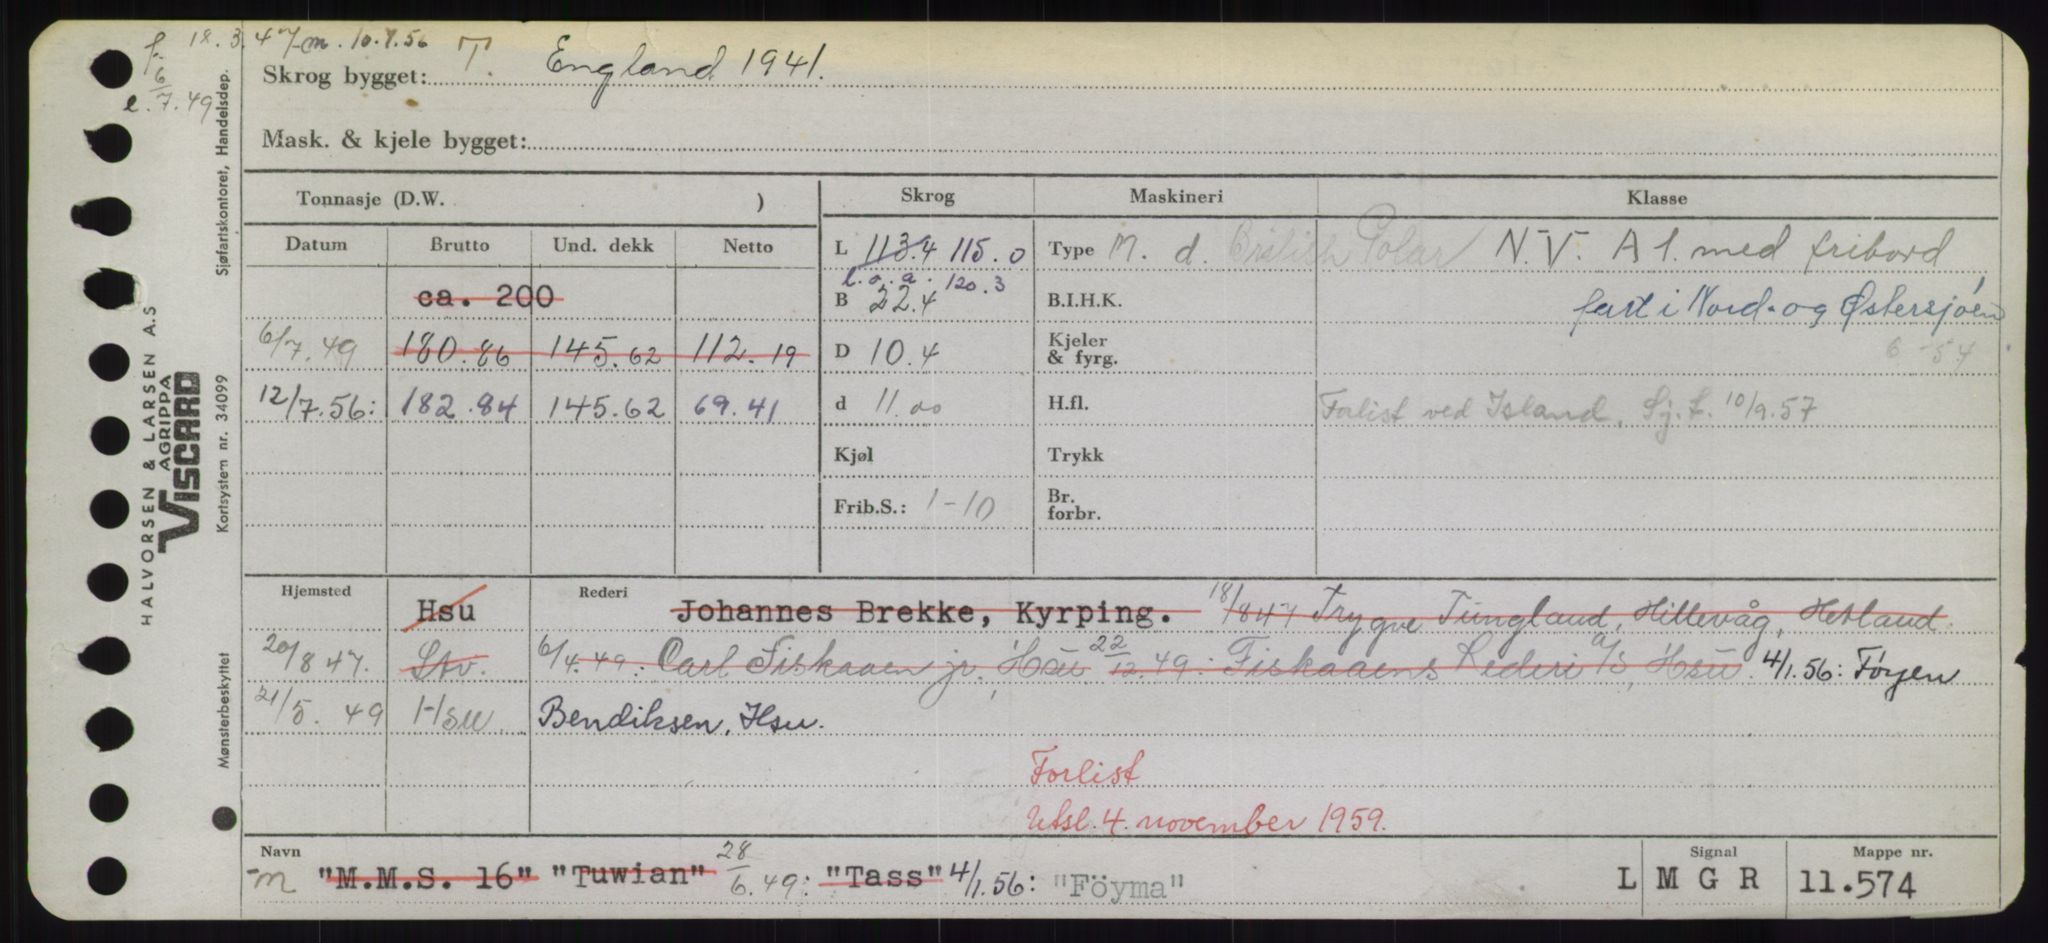 f. 18.3.47 m. 10.7.56
6
e. 7.49
Skrog bygget: T. England 1941.
Mask. & kjele bygget:
Tonnasje (D.W. )
Skrog
Maskineri
Klasse
Datum Brutto Und. dekk Netto
L 113.4 115.0
Type M. d. British Polar
N.V. A 1. med fribord
l.o.a. 120.3
ca. 200
B 22.4
B.I.H.K.
fart i Nord- og Østersjøen
6/7.49 180.86 145.62 112.19
D 10.4
Kjeler
& fyrg.
6-54
12/7.56: 182.84 145.62 69.41
d 11.00
H.fl.
Forlist ved Island. Sj.f. 10/9.57
Kjøl
Trykk
Frib.S.: 1-10
Br.
forbr.
Hjemsted Hsu
Rederi Johannes Brekke, Kyrping. 18/847 Trygve Tungland, Hillevåg, Hetland
20/8 47. Stv. 6/4.49: Carl Fiskaaen jr., Hsu 22/12.49: Fiskaaens Rederi a/s, Hsu. 4/1.56: Føyen
21/5. 49 Hsu. Bendiksen, Hsu.
Forlist
Utsl. 4. november 1959.
Navn
m "M.M.S. 16" "Tuwian" 28/6.49: "Tass" 4/1.56: "Föyma"
Signal
L M G R
Mappe nr.
11.574
HALVORSEN & LARSEN A.S
AGRIPPA
VISCARD
Sjøfartskontoret, Handelsdep.
Kortsystem nr. 34099
Mønsterbeskyttet